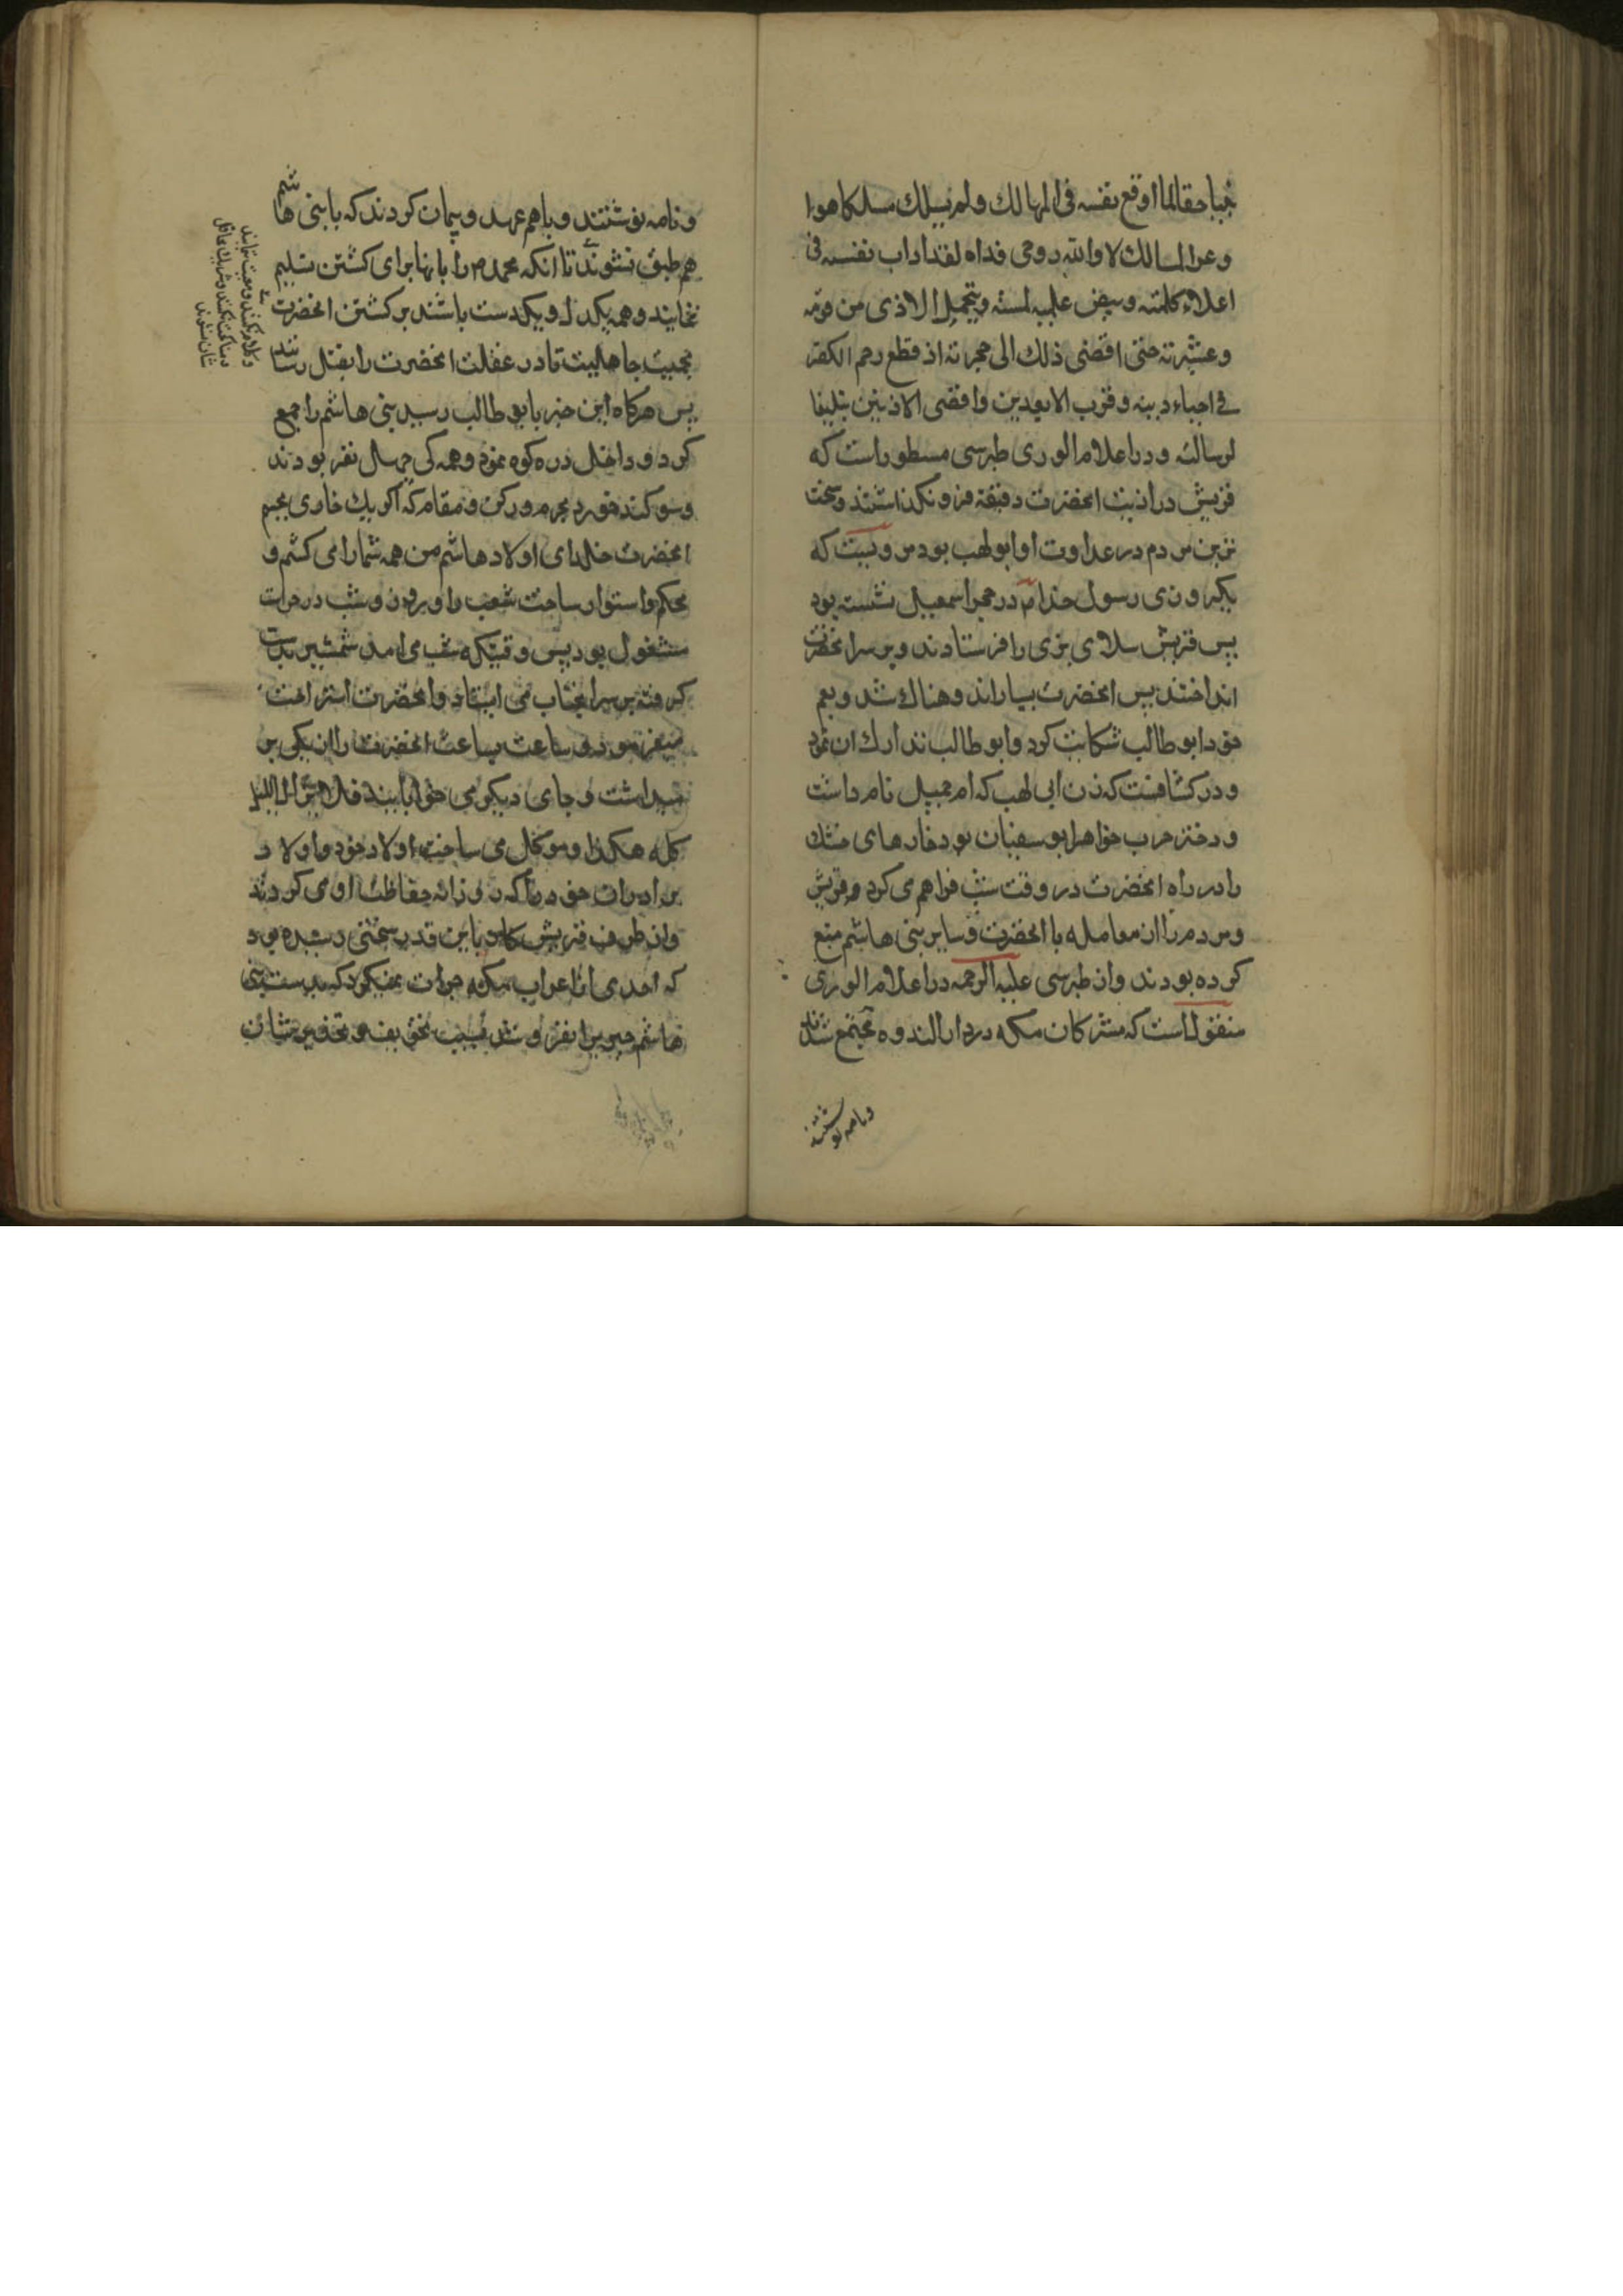 حقا لما اوقع نفسه فی المهالك ولم یسلك مسلكا هو
وعر المسالك لا والله روحی فداه لقد اداب نفسه فی
اعلاء كلمته ویتحمل الاذی من قومه
وعشیرته حتی افضی ذلك الی هجرته اذ قطع رحم الكفر
فی احیاء دینه وقرب الابعدین واقصی الادنین تبلیغا
لرسالته ودر اعلام الوری طبرسی مسطور است كه
قریش در اذیت انحضرت دقیقه فرو نكذاشتند وسخت
ترین مردم در عداوت او ابولهب بود مرویست كه
یكروزی رسول خدا در حجر اسمعیل نشسته بود
پس قریش سلای بزی را فرستادند وبر سر انحضرت
انداختند پس انحضرت بسیار اندوهناك شد وبعم
خود ابوطالب شكایت كرد وابوطالب تدارك ان نمود
ودر كشافست كه زن ابی لهب كه ام جمیل نام داشت
ودختر حرب خواهر ابوسفیان بود خارهای خشك
را در راه انحضرت در وقت شب فراهم می كرد وقریش
ومردم را از معامله با انحضرت وسایر بنی هاشم منع
كرده بودند واز طبرسی علیه الرحمه در اعلام الوری
منقول است كه مشركان مكه در دار الندوه مجتمع شدند
ونامه نوشتند
ونامه نوشتند وباهم عهد وپیمان كردند كه با بنی هاشم
هم طبق نشوند تا انكه محمد م را بانها برای كشتن تسلیم
نمایند وهمه یكدل ویكدست باشند بر كشتن انحضرت
جاهلیت تا در غفلت انحضرت را بقتل رسانند
پس هركاه این خبر بابو طالب رسید بنی هاشم را جمع
كرد وداخل دره كوه نمود وهمه كی چهل نفر بودند
وسوكند خورد بحرم وركن ومقام كه اكر یك خاری بجسم
انحضرت خلد ای اولاد هاشم من همه شما را می كشم و
محكم واستوار ساخت شعب را وروز وشب در حراست
مشغول بود پس وقتیكه شب می امد شمشیر بدست
كرفته بر سر انجناب می ایستاد وانحضرت استراحت
میفرمود وساعت بساعت انحضرت را از یكی بر
میداشت وجای دیكر می خوابانید فلا یزال اللیل
كله هكذا وموكل می ساخت اولاد خود واولاد
برادران خود را كه روزانه حفاظت او می كردند
واز طرف قریش كار باین قدر سختی رسیده بود
كه احدی از اعراب مكه جرات نمیكرد كه بدست بنی
هاشم چیزی را بفروشد بسبب تخویف وتحذیر شان